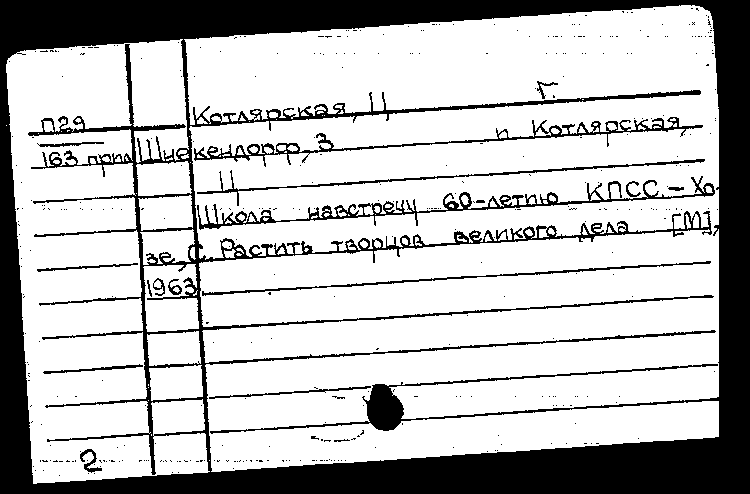 Г.
П29 Котлярская, Ц
163 прил Шнекендорф, З п Котлярская,
Ц
Школа навстречу 60-летию КПСС. – Хо-
зе, С. Растить творцов великого дела [М],
1963.
2